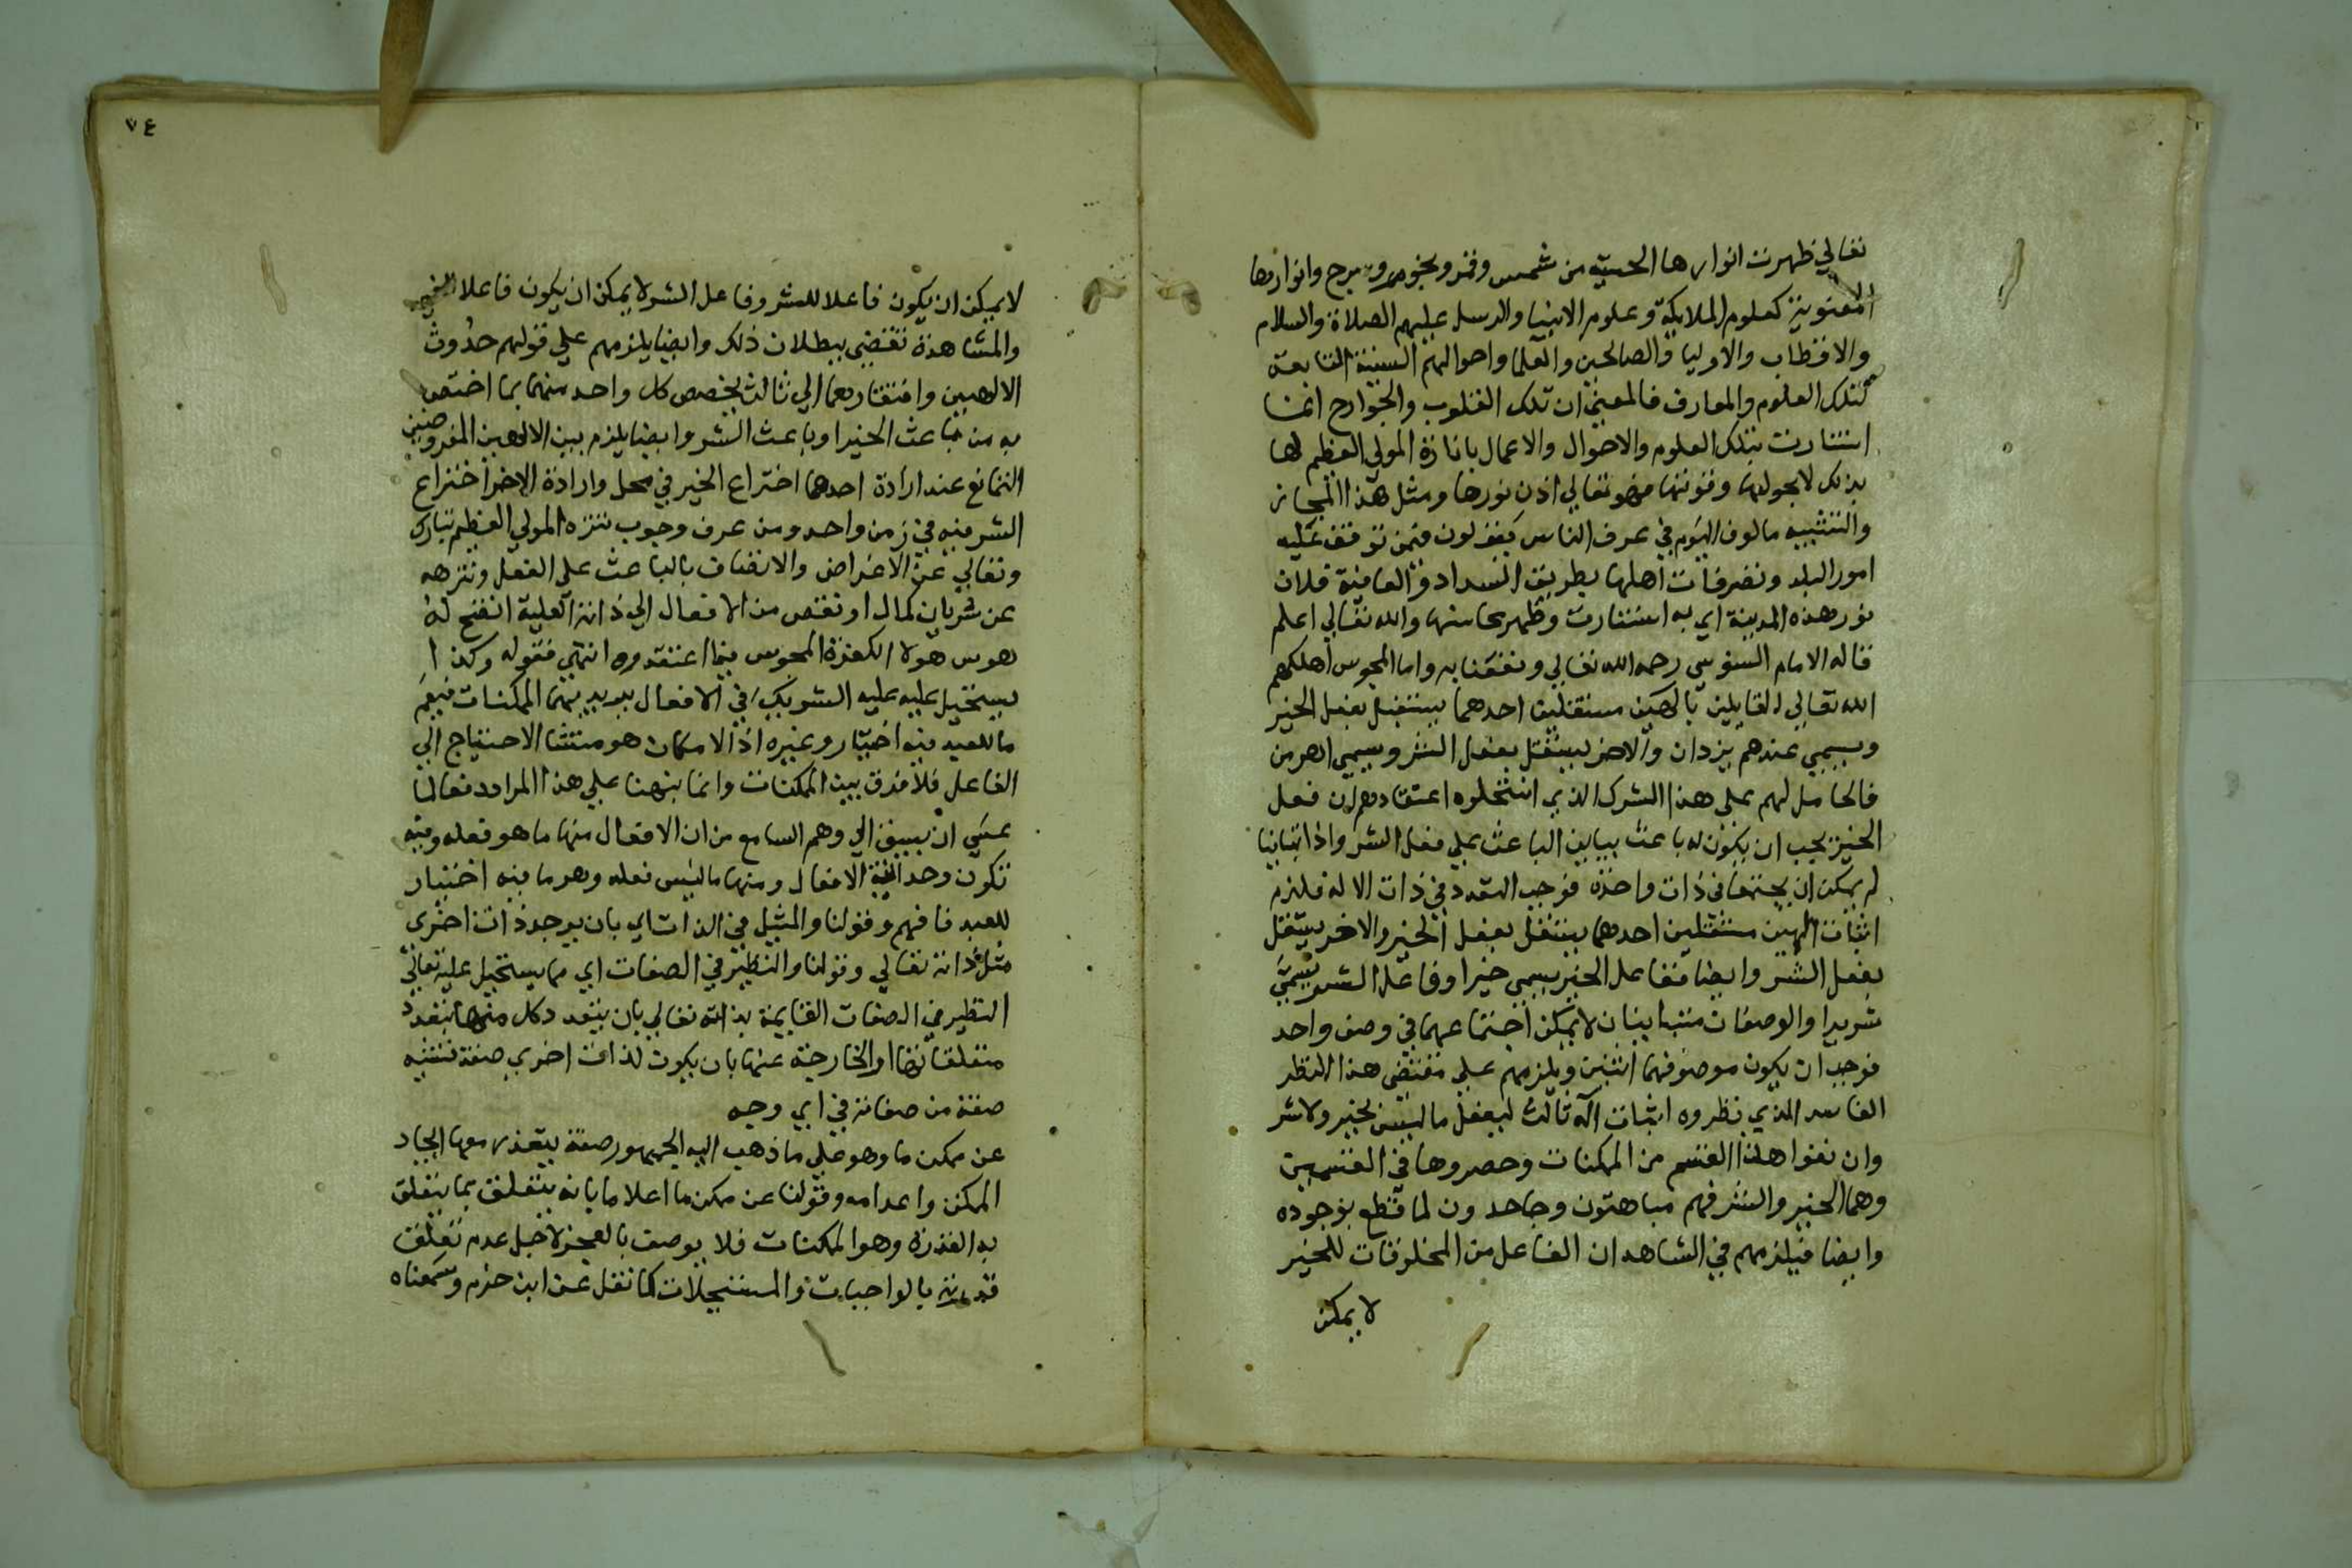 تعالي ظهرت انوارها الحسية من شمس وقمر ونجوم وسرج وانوارها
المعنوية كعلوم الملايكة وعلوم الانبيا والرسل عليهم الصلاة والسلام
والاقطاب والاوليا والصالحين والعلما واحوالهم السنية التابعة
لتلك العلوم والمعارف فالمعني ان تلك القلوب والجوارح انما
استنارت بتلك العلوم والاحوال والاعمال بانارة المولي العظيم لها
بذلك لا بحولها وقوتها فهو تعالي اذن نورها ومثل هذا المجاز
والتشبيه مالوف اليوم في عرف الناس يقولون فيمن توقف عليه
امور البلد وتصرفات اهلها بطريق السداد والعافية فلان
نور هذه المدينة اي به استنارت وظهر محاسنها والله تعالي اعلم
قاله الامام السنوسي رحمه الله تعالي ونفعنا به واما المجوس اهلكهم
الله تعالي القايلين بالهين مستقلين احدهما يستقل بفعل الخير
ويسمي عندهم يزدان والاخر يستقل بفعل الشر ويسمي اهرمن
فالحامل لهم علي هذا الشرك الذي انتحلوه اعتقادهم ان فعل
الخير يجب ان يكون له باعث يباين الباعث علي فعل الشر واذا تباينا
لم يمكن ان يجتمعا في ذات واحده فوجب التعدد في ذات الاله فلزم
اثبات الهين مستقلين احدهما يستقل بفعل الخير والاخر يستقل
بفعل الشر وايضا ففاعل الخير يسمي خيرا وفاعل الشر يسمي
شريرا والوصفان متباينان لا يمكن اجتماعهما في وصف واحد
فوجب ان يكون موصوفهما اثنين ويلزمهم علي مقتضي هذا النظر
الفاسد الذي نظروه اثبات اله ثالث ليفعل ما ليس بخير ولا شر
وان نفوا هذا القسم من الممكنات وحصروها في القسمين
وهما الخير والشر فهم مباهتون وجاحدون لما قطع بوجوده
وايضا فيلزمهم في الشاهد ان الفاعل من المخلوقات للخير
لا يمكن
٧٤
لا يمكن ان يكون فاعلا للشر وفاعل الشر لا يمكن ان يكون فاعلا للخير
والمشاهدة تقضي ببطلان ذلك وايضا يلزمهم علي قولهم حدوث
الالهين وافتقارهما الي ثالث يخصص كل واحد منهما بما اختص
به من باعث الخير او باعث الشر وايضا يلزم بين الالهين المفروضين
التمانع عند ارادة احدهما اختراع الخير في محل وارادة الاخر اختراع
الشر فيه في زمن واحد ومن عرف وجوب تنزه المولي العظيم تبارك
وتعالي عن الاغراض والاتصاف بالباعث علي الفعل وتنزهه
عن سريان كمال او نقص من الافعال الي ذاته العلية اتضح له
هوس هولا الكفرة المجوس فيما اعتقدوه انتهي فقوله وكذا
يستحيل عليه عليه الشريك في الافعال يريد بهما الممكنات فيعم
ما للعبد فيه اختيار وغيره اذ الامكان هو منشا الاحتياج الي
الفاعل فلا فرق بين الممكنات وانما نبهنا علي هذا المراد دفعا لما
عسي ان يسبق الي وهم السامع من ان الافعال منها ما هو فعله وفيه
تكون وحدانية الافعال ومنها ما ليس فعله وهو ما فيه اختيار
للعبد فافهم وقولنا والمثيل في الذات اي بان يوجد ذات اخري
مثل ذاته تعالي وقولنا والنظير في الصفات اي مما يستحيل عليه تعالي
النظير في الصفات القايمة بذاته تعالي بان يتعدد كل منها بتعدد
متعلقاتها او الخارجة عنها بان يكون لذات اخري صفة تشبه
صفة من صفاته في اي وجه
عن ممكن ما وهو علي ما ذهب اليه الجمهور صفة يتعذر معها ايجاد
الممكن واعدامه وقولنا عن ممكن ما اعلاما بانه يتعلق بما يتعلق
به القدرة وهو الممكنات فلا يوصف بالعجز لاجل عدم تعلق
قدرته بالواجبات والمستحيلات كما نقل عن ابن حزم وسمعناه